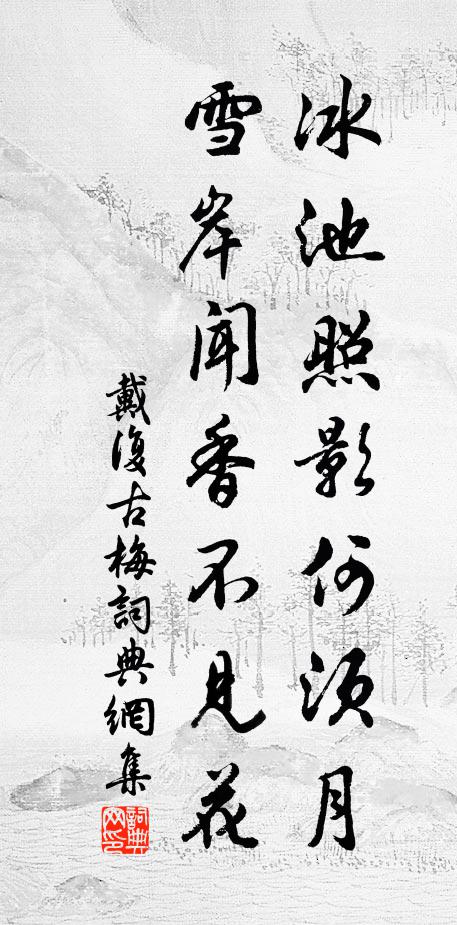 冰池照影何須月
雪岸聞香不見花
戴復古梅詞典網集
詞典網印